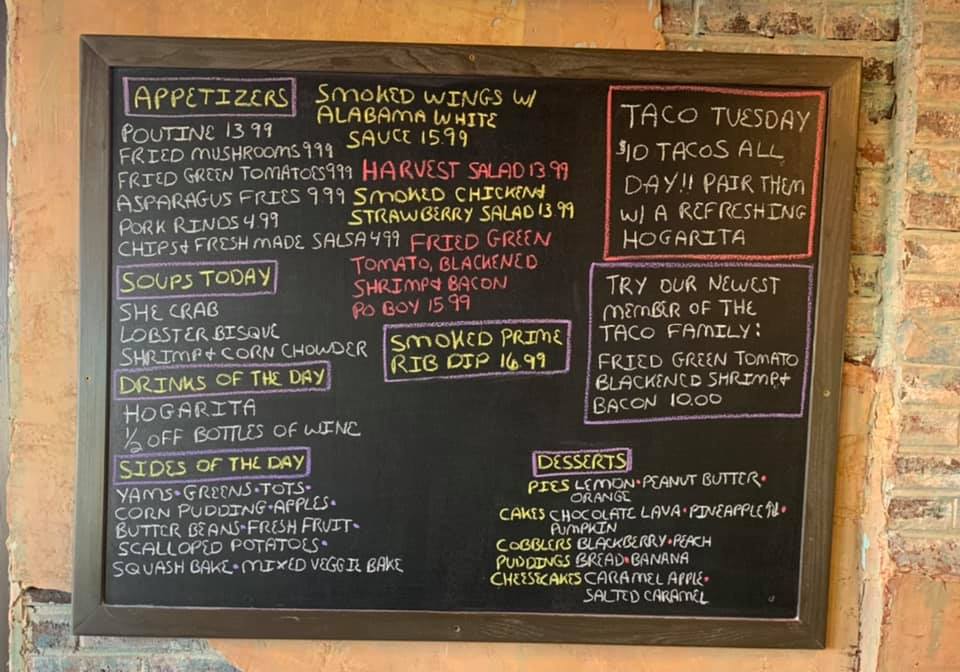 APPETIZERS
POUTINE 13 99
FRIED MUSHROOMS 999
FRIED GREEN TOMATOES 999
ASPARAGUS FRIES 9 99
PORK RINDS 4.99
CHIPS & FRESH MADE SALSA 4 99
SOUPS TODAY
SHE CRAB
LOBSTER BISQUE
SHRIMP & CORN CHOWDER
DRINKS OF THE DAY
HOGARITA
1/2 OFF BOTTLES OF WINE
SIDES OF THE DAY
YAMS • GREENS • TOTS •
CORN PUDDING • APPLES •
BUTTER BEANS • FRESH FRUIT •
SCALLOPED POTATOES •
SQUASH BAKE • MIXED VEGGIE BAKE
SMOKED WINGS W/
ALABAMA WHITE
SAUCE 15.99
HARVEST SALAD 13.99
SMOKED CHICKEN &
STRAWBERRY SALAD 13.99
FRIED GREEN
TOMATO, BLACKENED
SHRIMP & BACON
PO BOY 15.99
SMOKED PRIME
RIB DIP 16.99
TACO TUESDAY
$10 TACOS ALL
DAY!! PAIR THEM
W/ A REFRESHING
HOGARITA
TRY OUR NEWEST
MEMBER OF THE
TACO FAMILY:
FRIED GREEN TOMATO
BLACKENED SHRIMP &
BACON 10.00
DESSERTS
PIES LEMON • PEANUT BUTTER •
ORANGE
CAKES CHOCOLATE LAVA • PINEAPPLE •
PUMPKIN
COBBLERS BLACKBERRY • PEACH
PUDDINGS BREAD • BANANA
CHEESECAKES CARAMEL APPLE •
SALTED CARAMEL